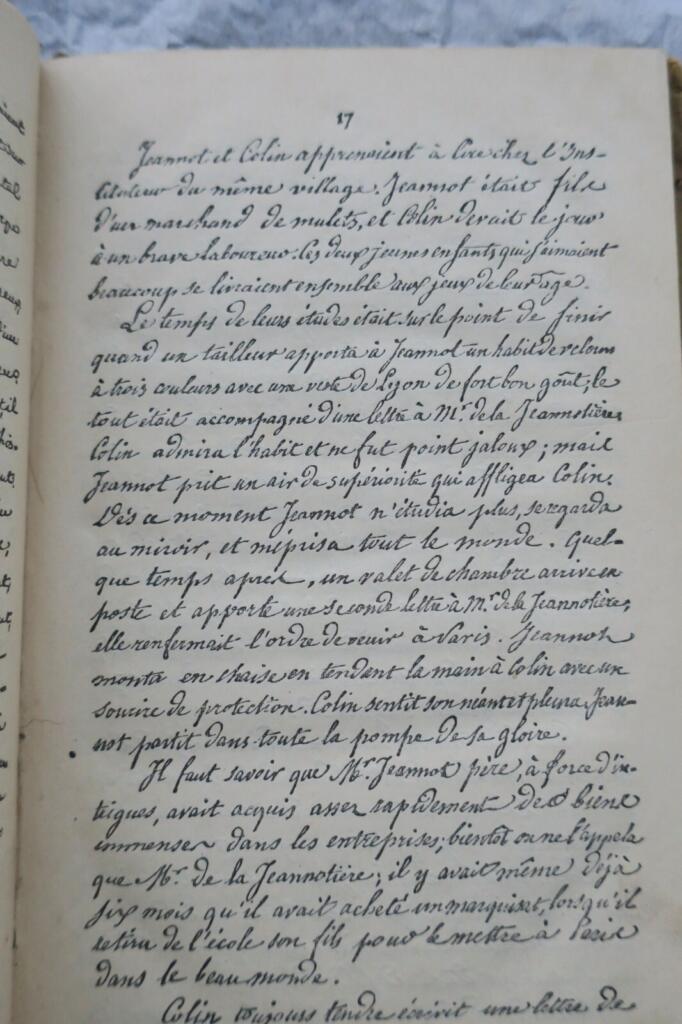 17
Jeannot et Colin apprenaient à lire chez l'Ins-
tituteur du même village. Jeannot était fils
d'un marchand de mulets, et Colin devait le jour
à un brave laboureur. Ces deux jeunes enfants qui s'aimaient
beaucoup se livraient ensemble aux jeux de leur âge.
Le temps de leurs études était sur le point de finir
quand un tailleur apporta à Jeannot un habit de velours
à trois couleurs avec une veste de Lyon de fort bon goût; le
tout était accompagné d'une lettre à Mr. de la Jeannotière.
Colin admira l'habit et ne fut point jaloux; mais
Jeannot prit un air de supériorité qui affligea Colin.
Dès ce moment Jeannot n'étudia plus, se regarda
au miroir, et méprisa tout le monde. Quel-
que temps après, un valet de chambre arrive en
poste et apporte une seconde lettre à Mr. de la Jeannotière;
elle renfermait l'ordre de venir à Paris. Jeannot
monta en chaise en tendant la main à Colin avec un
sourire de protection. Colin sentit son néant et pleura. Jean-
not partit dans toute la pompe de sa gloire.
Il faut savoir que Mr. Jeannot père, à force d'in-
trigues, avait acquis assez rapidement des biens
immenses dans les entreprises; bientôt on ne l'appela
que Mr. de la Jeannotière; il y avait même déjà
six mois qu'il avait acheté un marquisat, lorsqu'il
retira de l'école son fils pour le mettre à Paris
dans le beau monde.
Colin toujours tendre écrivit une lettre de